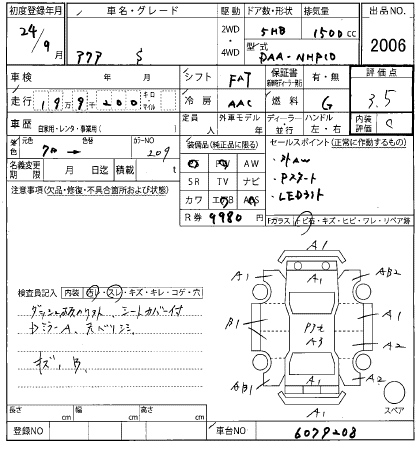 初度登録年月 車名・グレード 駆動 ドア数・形状 排気量 出品NO.
24年 9月 アクア S 2WD・4WD 5HB 1500cc 2006
型式 DAA-NHP10
車検 年 月 シフト FAT 保証書 有・無 評価点
走行 19万9千200 キロ マイル 冷房 AAC 燃料 G 3.5
車歴 自家用・レンタ・事業用( ) 定員 人 外車モデル 年 ディーラー・並行 ハンドル 左・右 内装評価 C
色 元色 色替 カラーNO 209
装備品(純正品に限る) セールスポイント (正常に作動するもの)
PS PW AW
・社外AW
名義変更期限 月 日迄 積載 t
SR TV ナビ
・Pスタート
注意事項(欠品・修復・不具合箇所および状態)
カワ エアB ABS
・LEDライト
R券 9980円
Fガラス トビ石・キズ・ヒビ・ワレ・リペア跡
A1
A1 A1 AB2
検査員記入 内装 汚レ・スレ・キズ・キレ・コゲ・穴
シートカバー付
B1 A1
A3 A2
DミラーA
キズ、B
AB1 A1 A2
A1
スペア
長さ cm 幅 cm 高さ cm
登録NO 車台NO 6079208